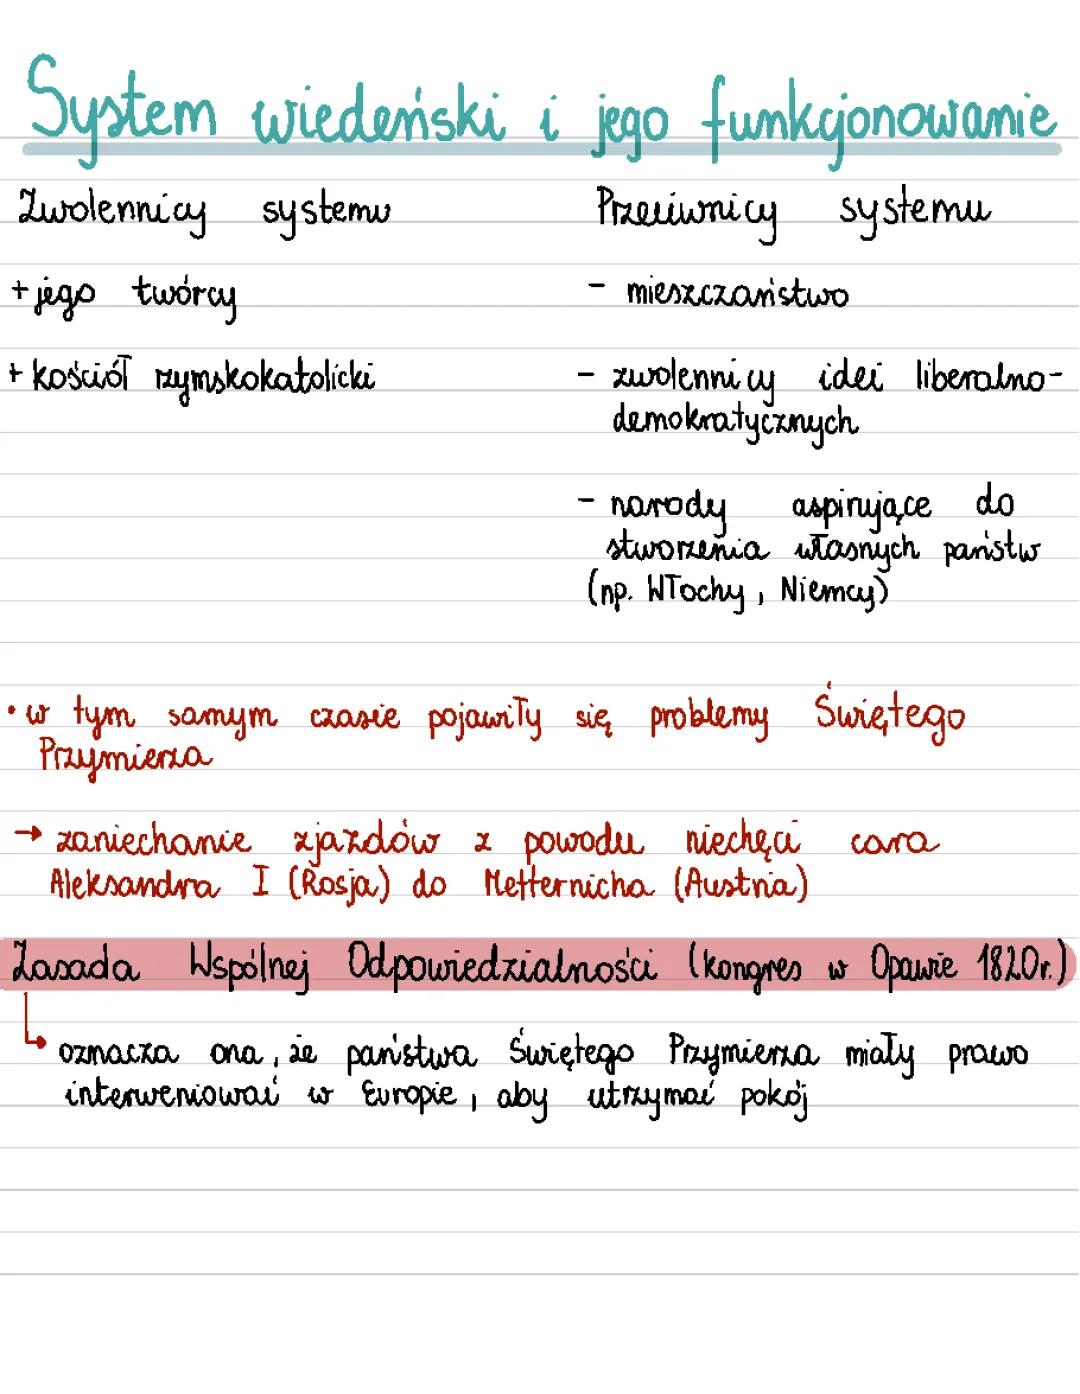 System wiedeński i jego funkcjonowanie
Zwolennicy systemu
Przeciwnicy systemu
+ jego twórcy
- mieszczaństwo
+ kościół rzymskokatolicki
- zwolennicy idei liberalno-
demokratycznych
- narody aspirujące do
stworzenia własnych państw
(np. Włochy, Niemcy)
• w tym samym czasie pojawiły się problemy Świętego
Przymierza
→ zaniechanie zjazdów z powodu niechęci cara
Aleksandra I (Rosja) do Metternicha (Austria)
Zasada Wspólnej Odpowiedzialności (kongres w Opawie 1820r.)
oznacza ona, że państwa Świętego Przymierza miały prawo
interweniować w Europie, aby utrzymać pokój